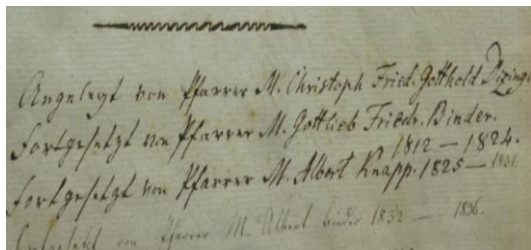 Angelegt von Pfarrer M. Christoph Fried. Gotthold
Fortgesetzt von Pfarrer M. Gottlieb Friedr. Binder.
1812 — 1824.
Fortgesetzt von Pfarrer M. Albert Knapp. 1825 — 1831.
Fortgesetzt von Pfarrer M. Albert Binder 1832 — 1836.